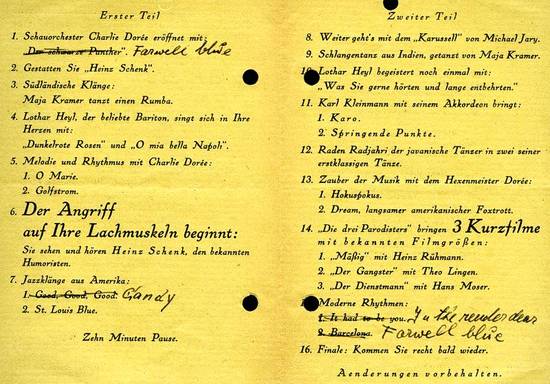 Erster Teil
1. Schauorchester Charlie Dorée eröffnet mit:
„Der schwarze Panther". Farwell blue
2. Gestatten Sie „Heinz Schenk".
3. Südländische Klänge:
Maja Kramer tanzt einen Rumba.
4. Lothar Heyl, der beliebte Bariton, singt sich in Ihre
Herzen mit:
„Dunkelrote Rosen" und „O mia bella Napoli".
5. Melodie und Rhythmus mit Charlie Dorée:
1. O Marie.
2. Golfstrom.
6. Der Angriff
auf Ihre Lachmuskeln beginnt:
Sie sehen und hören Heinz Schenk, den bekannten
Humoristen.
7. Jazzklänge aus Amerika:
1. Good, Good, Good. Candy
2. St. Louis Blue.
Zehn Minuten Pause.
Zweiter Teil
8. Weiter geht's mit dem „Karussell" von Michael Jary.
9. Schlangentanz aus Indien, getanzt von Maja Kramer.
10. Lothar Heyl begeistert noch einmal mit:
„Was Sie gerne hörten und lange entbehrten."
11. Karl Kleinmann mit seinem Akkordeon bringt:
1. Karo.
2. Springende Punkte.
12. Raden Radjahri der javanische Tänzer in zwei seiner
erstklassigen Tänze.
13. Zauber der Musik mit dem Hexenmeister Dorée:
1. Hokuspokus.
2. Dream, langsamer amerikanischer Foxtrott.
14. „Die drei Parodisters" bringen 3 Kurzfilme
mit bekannten Filmgrößen:
1. „Mäßig" mit Heinz Rühmann.
2. „Der Gangster" mit Theo Lingen.
3. „Der Dienstmann" mit Hans Moser.
Moderne Rhythmen:
1. It had to be you. In the
2. Barcelona. Farwell blue
16. Finale: Kommen Sie recht bald wieder.
Aenderungen vorbehalten.